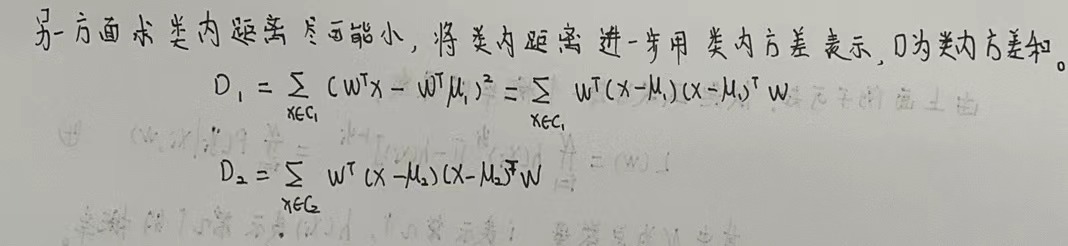 另一方面求类内距离尽可能小,将类内距离进一步用类内方差表示,D为类内方差和。
D₁ = ∑_{x∈C₁} (wᵀx − wᵀμ₁)² = ∑_{x∈C₁} wᵀ(x−μ₁)(x−μ₁)ᵀ w
D₂ = ∑_{x∈C₂} wᵀ(x−μ₂)(x−μ₂)ᵀ w